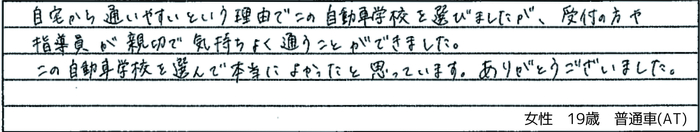 自宅から通いやすいという理由でこの自動車学校を選びましたが、受付の方や
指導員が親切で気持ちよく通うことができました。
この自動車学校を選んで本当によかったと思っています。ありがとうございました。
女性 19歳 普通車(AT)